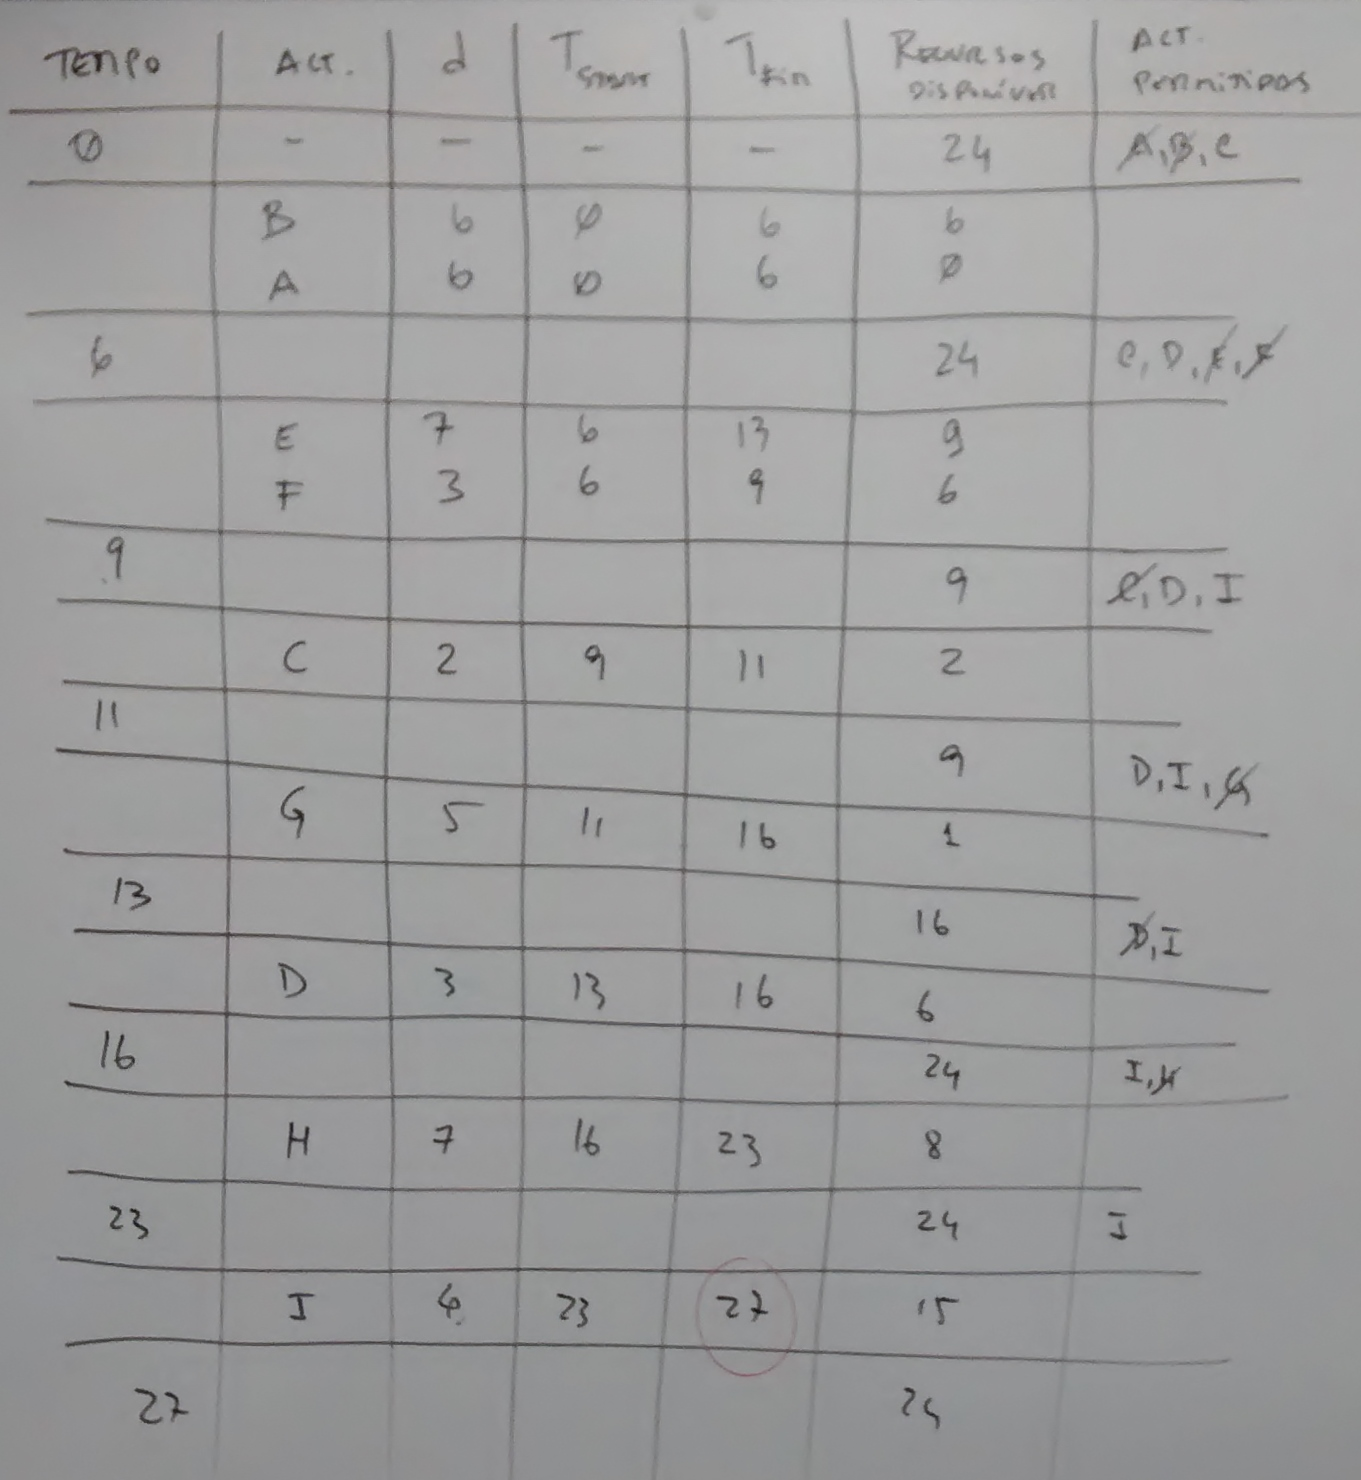 TEMPO ACT. d Tstart Tfin Recursos Disponíveis ACT. Permitidas
0 - - - - 24 A, B, C
B 6 0 6 6
A 6 0 6 0
6 24 C, D, E, F
E 7 6 13 9
F 3 6 9 6
9 9 C, D, I
C 2 9 11 2
11 9 D, I, G
G 5 11 16 1
13 16 D, I
D 3 13 16 6
16 24 I, H
H 7 16 23 8
23 24 I
I 4 23 27 15
27 24